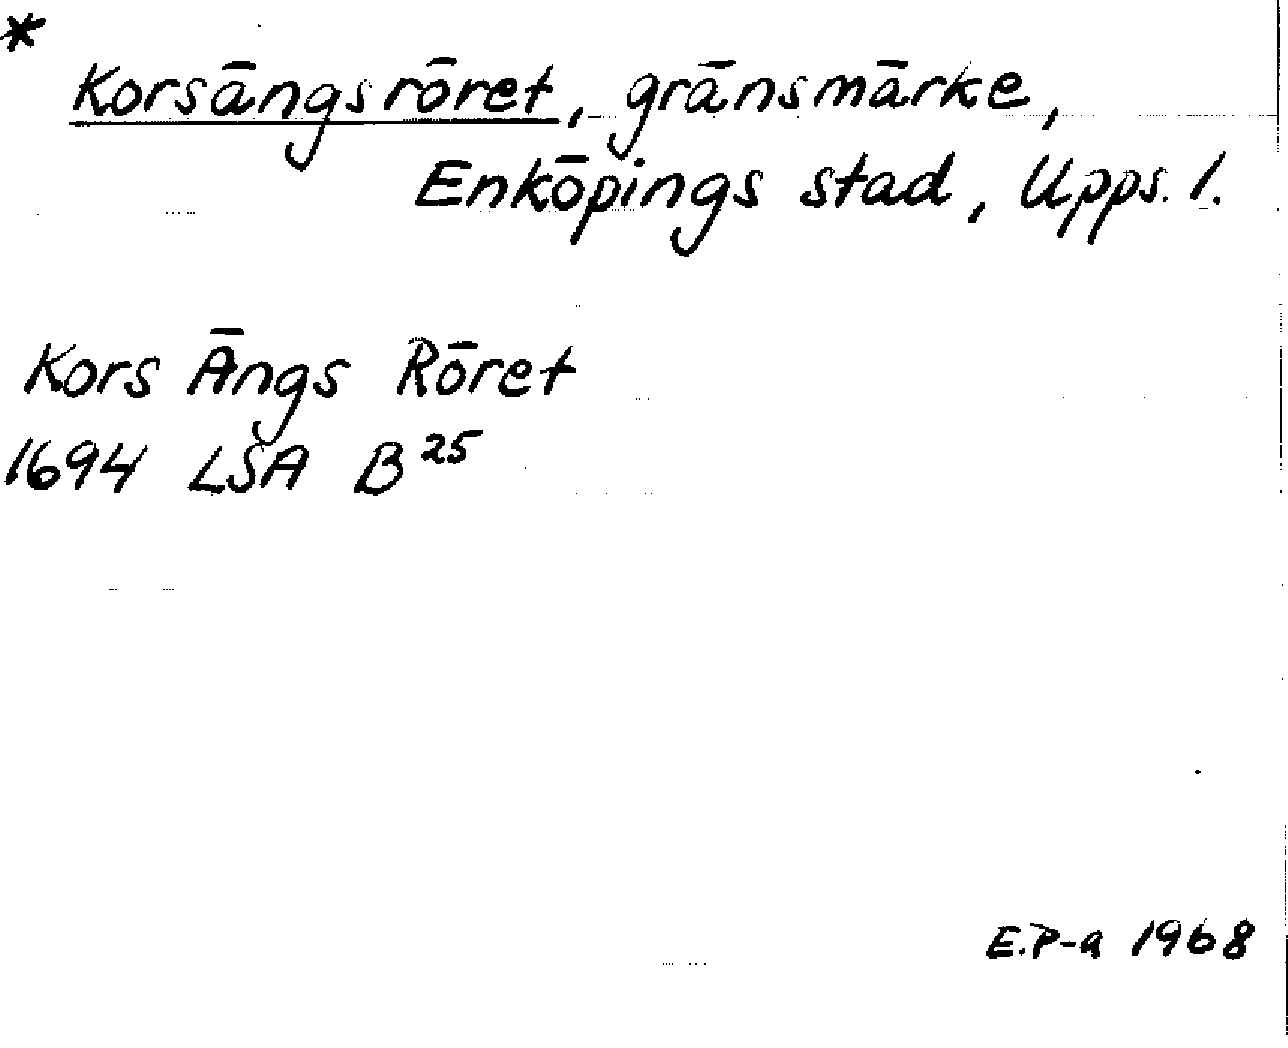 *
Korsängsröret, gränsmärke,
Enköpings stad, Upps. l.
Kors Ängs Röret
1694 LSA B²⁵
E.P-a 1968